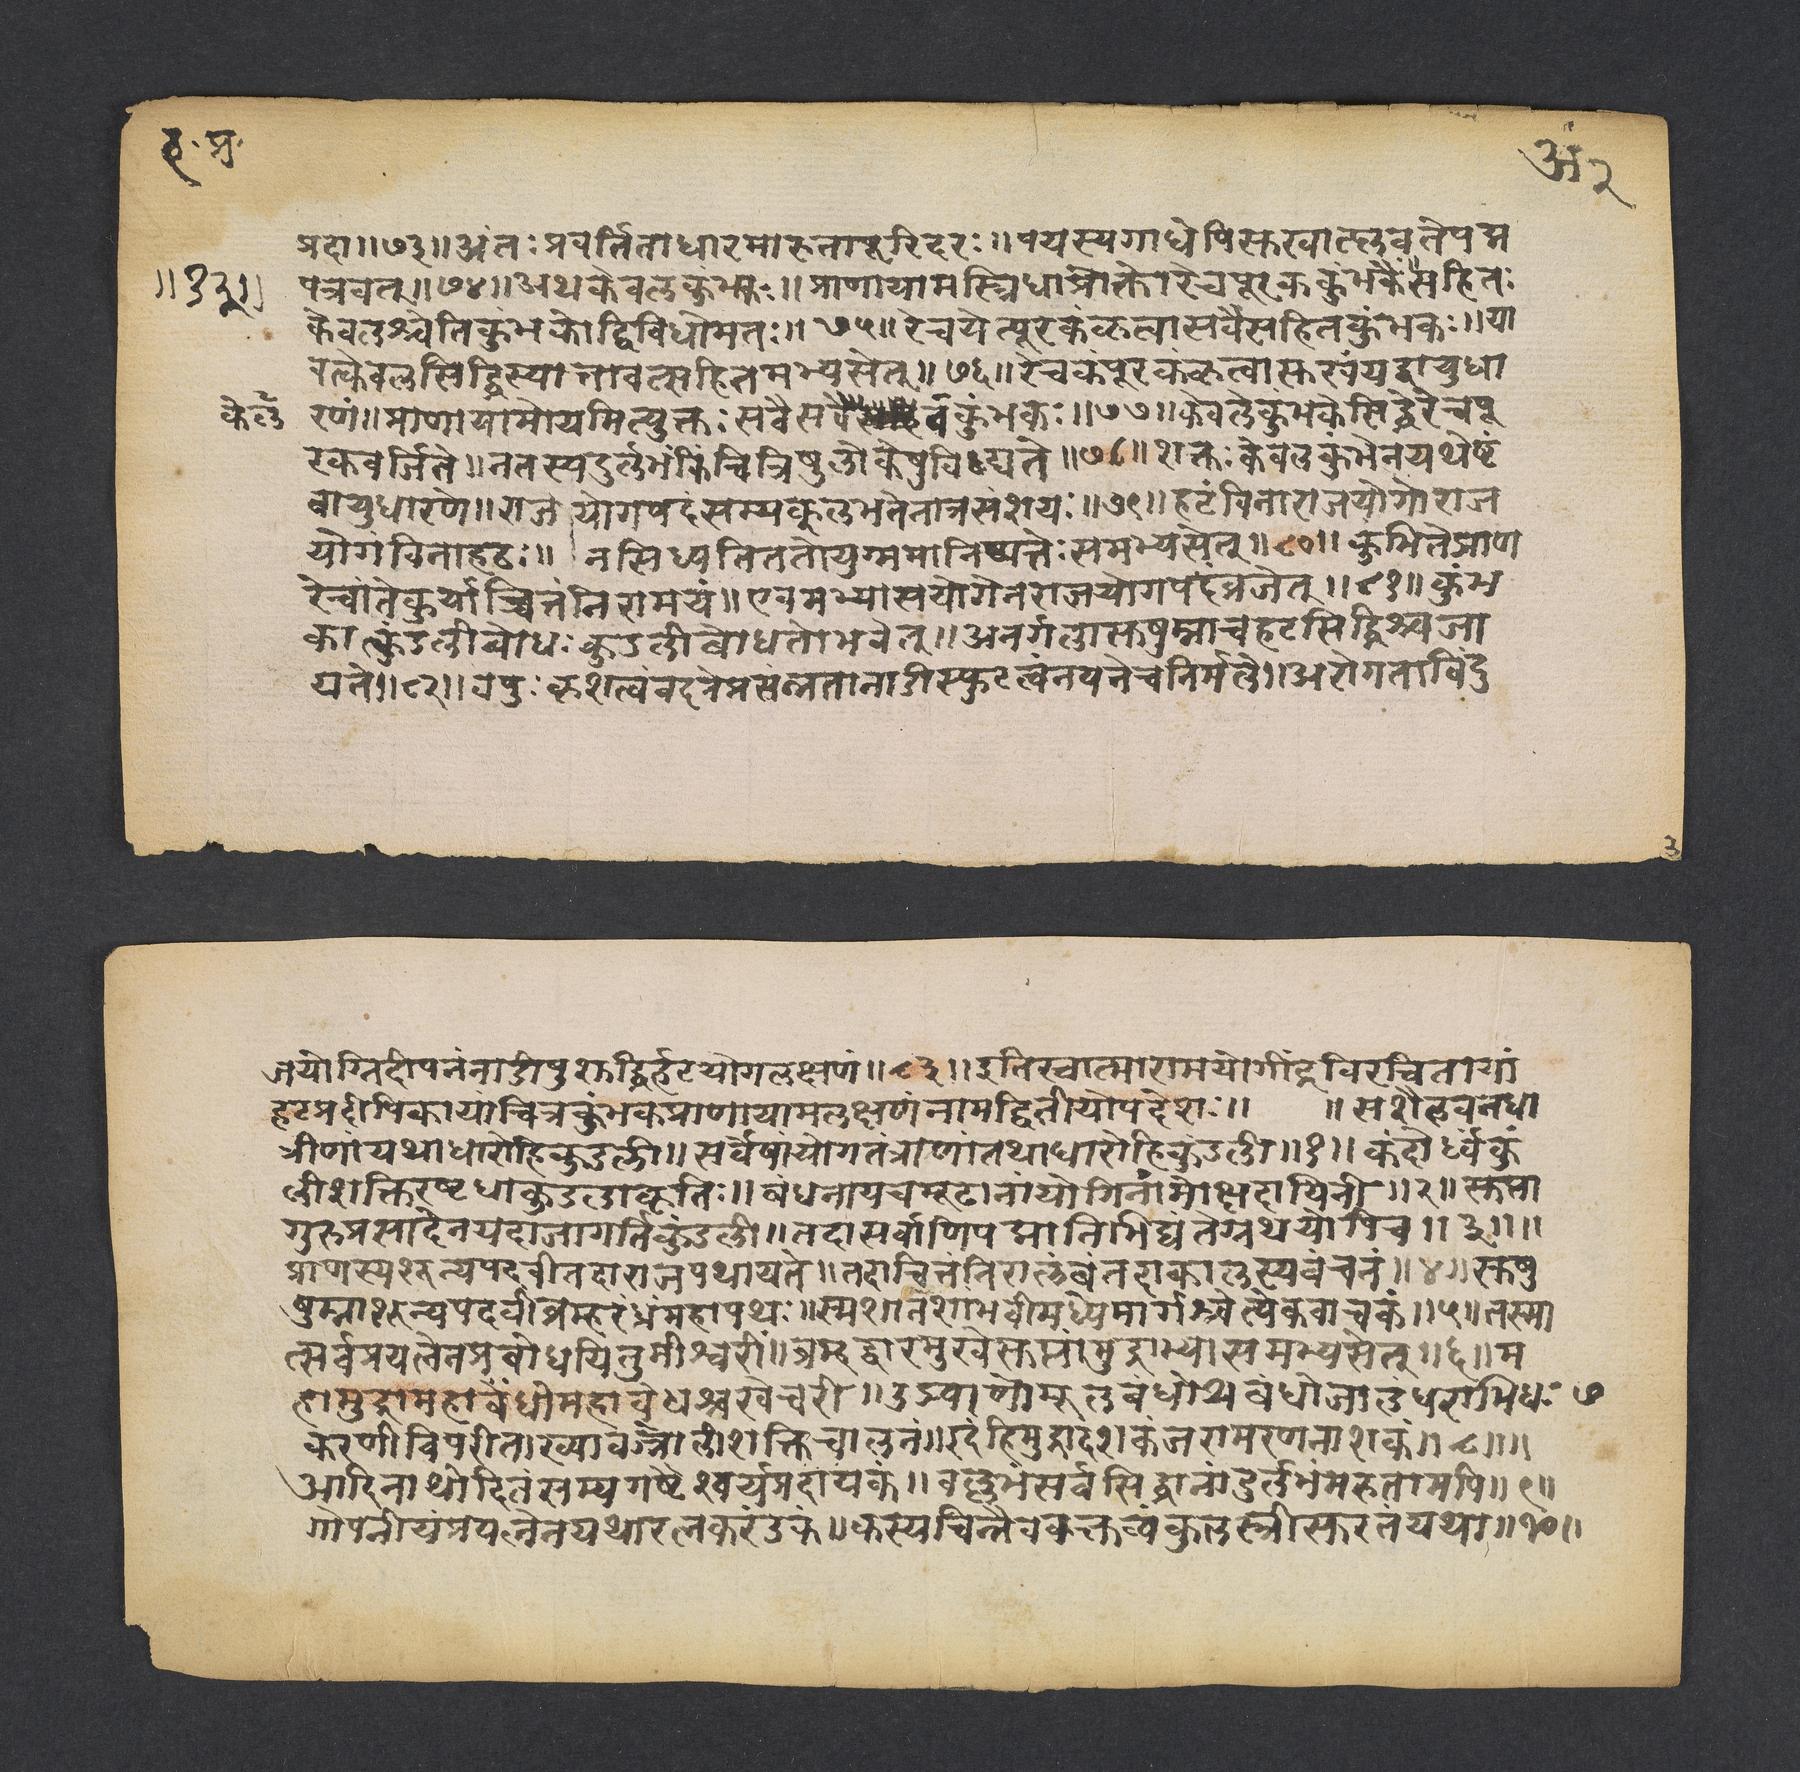 ह॰ प्र॰
अं २
प्रदा॥७३॥अंतः प्रवर्तिताधारमारुतापूरिदरः॥पयस्यगाधेपिसुखात्प्लवतेपद्म
॥१२॥
पत्रवत्॥७४॥अथकेवलकुंभकः॥प्राणायामस्त्रिधाप्रोक्तोरेचपूरककुंभकैःसहितः
केवलश्चेतिकुंभकोद्विविधोमतः॥७५॥रेचयेत्पूरकंकृत्वासवैसहितकुंभकः॥या
वत्केवलसिद्धिस्यात्तावत्सहितमभ्यसेत्॥७६॥रेचकंपूरकंकृत्वासुखंयद्वायुधा
केवल
रणं॥प्राणायामोयमित्युक्तः सवैसवै कुंभकः॥७७॥केवलेकुंभकेसिद्धेरेचपू
रकवर्जिते॥नतस्यदुर्लभंकिंचित्रिषुलोकेषुविद्यते॥७८॥शक्तः केवलकुंभेनयथेष्टं
वायुधारणे॥राजयोगपदंसम्यक्लभतेनात्रसंशयः॥७९॥हटंविनाराजयोगोराज
योगंविनाहठः॥नसिध्यतिततोयुग्ममानिष्पत्तेः समभ्यसेत्॥८०॥कुंभितेप्राण
रेचांतेकुर्याच्चित्तंनिरामयं॥एवमभ्यासयोगेनराजयोगपदंव्रजेत्॥८१॥कुंभ
कात्कुंडलीबोधः कुडलीबोधतोभवेत्॥अनर्गलासुषुम्नाचहटसिद्धिश्चजा
यते॥८२॥वपुः कृशत्वंवदनेप्रसंन्नतानाडीस्फुटत्वंनयनेचनिर्मले॥अरोगताबिंदु
३
जयोग्निदीपनंनाडीषुशुद्धिर्हटयोगलक्षणं॥८३॥इतिस्वात्मारामयोगींद्रविरचितायां
हटप्रदीपिकायांचित्रकुंभकप्राणायामलक्षणंनामद्वितीयोपदेशः॥ ॥सशैलवनधा
त्रीणांयथाधारोहिकुडली॥सर्वेषांयोगतंत्राणांतथाधारोहिकुंडली॥१॥कंदोर्ध्वेकुं
लीशक्तिरष्टधाकुडलाकृतिः॥बंधनायचमूढानांयोगिनांमोक्षदायिनी॥२॥सुप्ता
गुरुप्रसादेनयदाजागर्तिकुंडली॥तदासर्वाणिपद्मानिभिद्यंतेग्रथयोपिच॥३॥॥
प्राणस्यशून्यपदवीतदाराजपथायते॥तदाचित्तंनिरालंबंतदाकालस्यवंचनं॥४॥सुषु
षुम्नाशून्यपदवीब्रम्हरंध्रंमहापथः॥स्मशानंशांभवीमध्यमार्गश्चेत्येकवाचकं॥५॥तस्मा
त्सर्वप्रयत्नेनप्रबोधयितुमीश्वरीं॥ब्रम्हद्वारमुखेसुप्तांमुद्राभ्यासमभ्यसेत्॥६॥म
हामुद्रामहाबंधोमहावेधश्चखेचरी॥उड्याणोमूलबंधोश्चबंधोजालंधराभिधः ७
करणीविपरीताख्यावज्रोलीशक्तिचालनं॥इदंहिमुद्रादशकंजरामरणनाशकं॥८॥॥
आदिनाथोदितंसम्यगष्टैश्वर्यप्रदायकं॥वल्लभंसर्वसिद्धानांदुर्लभंमरुतामपि॥९॥
गोपनीयंप्रयत्नेनयथारत्नकरंडकं॥कस्यचिन्नैववक्तव्यंकुलस्त्रीसुरतंयथा॥१०॥